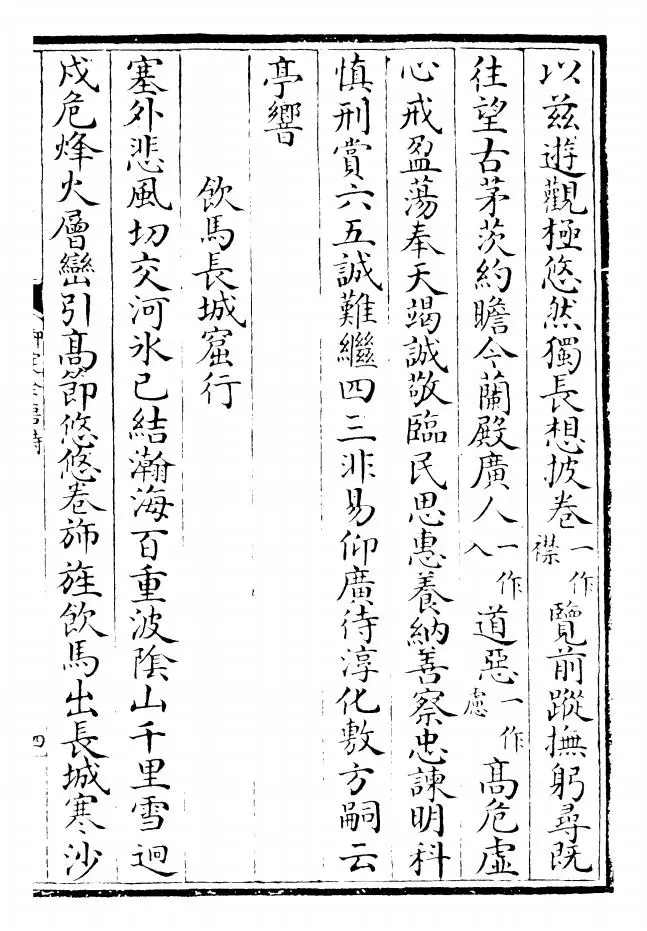 以兹遊觀極悠然獨長想披卷一作襟覽前蹤撫躬尋既
往望古茅茨約瞻今蘭殿廣人一作入道惡一作慮高危虛
心戒盈蕩奉天竭誠敬臨民思惠養納善察忠諫明科
慎刑賞六五誠難繼四三非易仰廣待淳化敷方嗣云
亭響
飲馬長城窟行
塞外悲風切交河氷已結瀚海百重波隂山千里雪迥
戍危烽火層巒引髙節悠悠卷斾旌飲馬出長城寒沙
御定全唐詩
四